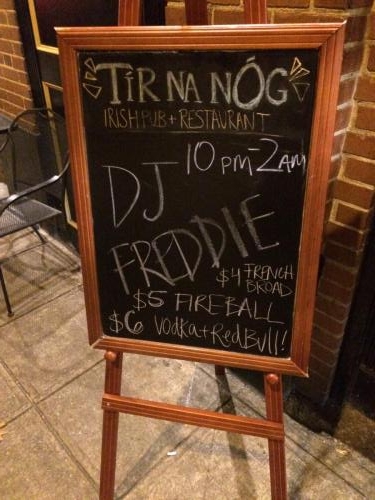 TÍR NA NÓG
IRISH PUB + RESTAURANT
10 PM-2AM
DJ
FREDDIE
$4 FRENCH
BROAD
$5 FIREBALL
$6 Vodka+RedBull!